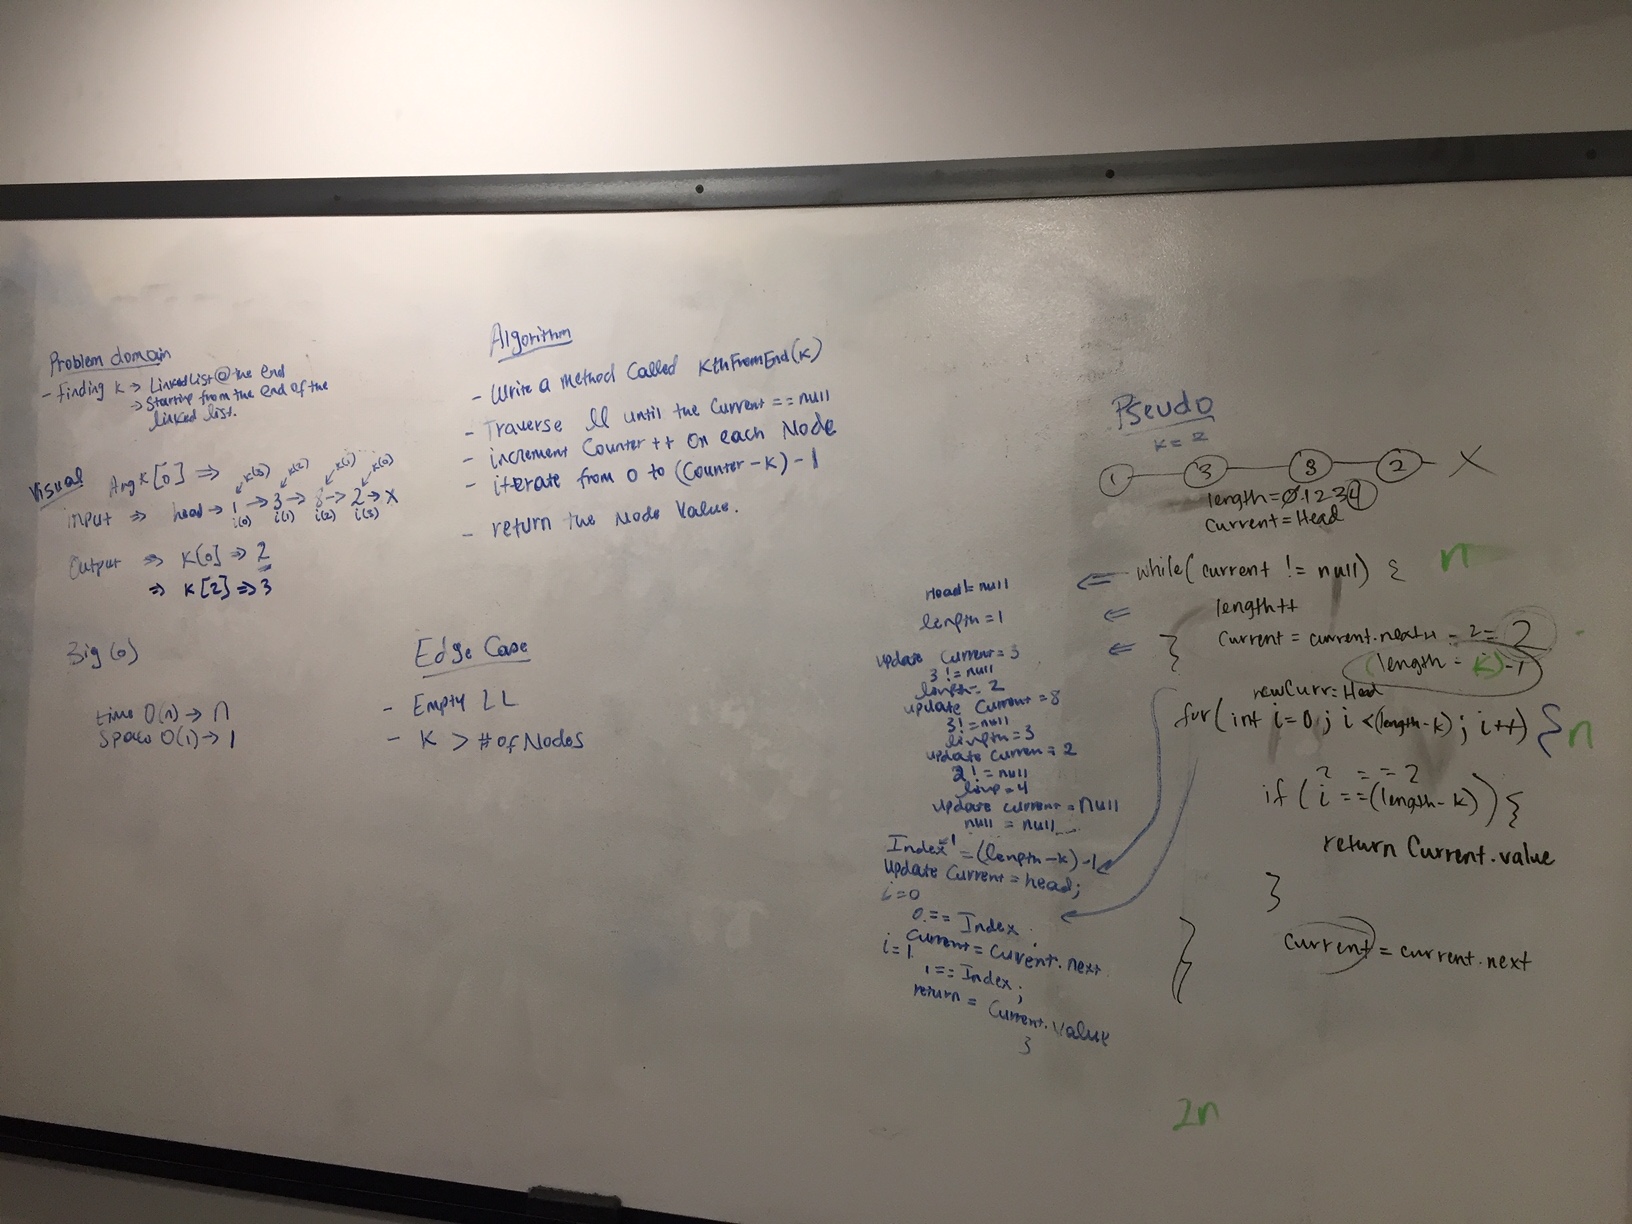 Problem domain
- Finding K → LinkedList @ the end
→ Starting from the end of the
linked list.
Visual
Arg K[0] ⇒
K(3) K(2) K(1) K(0)
input ⇒ head → 1 → 3 → 8 → 2 → X
i(0) i(1) i(2) i(3)
Output ⇒ K[0] ⇒ 2
⇒ K[2] ⇒ 3
Big (o)
time O(n) → n
Space O(1) → 1
Algorithm
- Write a Method Called KthFromEnd(K)
- Traverse ll until the Current == null
- increment Counter ++ on each Node
- iterate from 0 to (Counter - K) - 1
- return the Node Value.
Edge Case
- Empty LL
- K > # of Nodes
Head != null
length = 1
update Current = 3
3 != null
length = 2
update Current = 8
3 != null
length = 3
update Curren = 2
2 != null
= 4
update current = null
null = null
Index = (length - K) - 1
update Current = head;
i = 0
0 == Index;
Current = Current.next
i = 1
1 == Index;
return = Current.Value
}
Pseudo
K = 2
1 3 8 2 X
length = 0 1 2 3 4
Current = Head
while( current != null) { n
length++
} current = current.next 4 - 2 = 2
(length - K) - 1
newCurr = Head
for( int i = 0 ; i < (length - k) ; i++) { n
2 == 2
if ( i == (length - k) ) {
return Current.value
}
current = current.next
}
2n